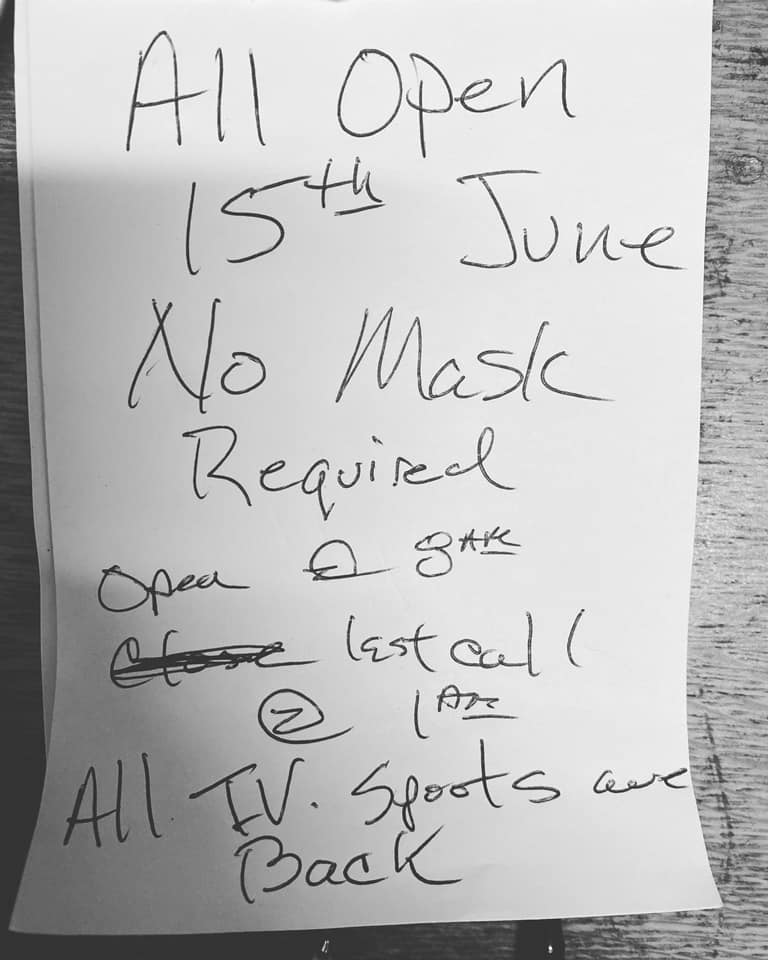 All Open
15th June
No Mask
Required
Open @ 8AM
Close last call
@ 1AM
All T.V. Sports are
Back